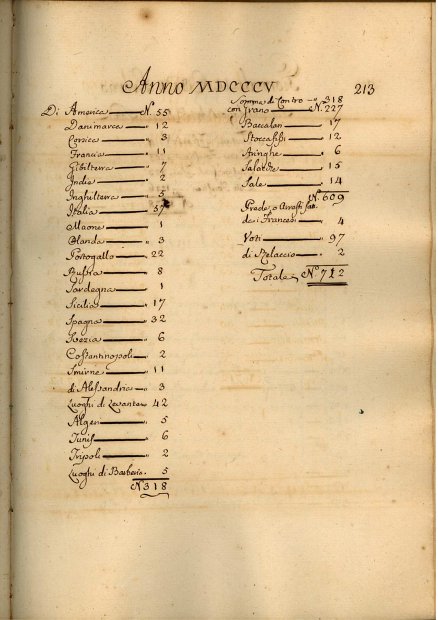 Anno MDCCCV 213
Di America N. 55
Danimarca 12
Corsica 3
Francia 11
Gibilterra 7
Indie 2
Inghilterra 5
Italia 57
Maone 1
Olanda 3
Portogallo 22
Russia 8
Sardegna 1
Sicilia 17
Spagna 32
Svezia 6
Costantinopoli 2
Smirne 11
di Alessandria 3
Luoghi di Levante 42
Algeri 5
Tunis 6
Tripoli 2
Luoghi di Barberia. 5
N. 318
Somma di Contro 318
con Grano N. 227
Baccalari 17
Stoccafissi 12
Aringhe 6
Salacche 15
Sale 14
N. 609
Prede o Arresti
de i Francesi 4
Voti 97
di Rilascio 2
Totale N.º 712